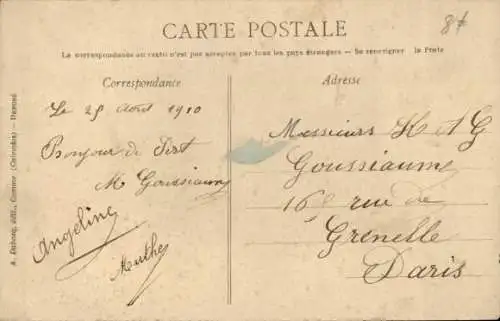 CARTE POSTALE
La correspondance au verso n'est pas acceptée par tous les pays étrangers — Se renseigner à la Poste
Correspondance
Adresse
Le 25 Août 1910
Bonjour de
M Goussiaume
Angeline
Marthe
Messieurs H et G
Goussiaume
16 rue de
Grenelle
Paris